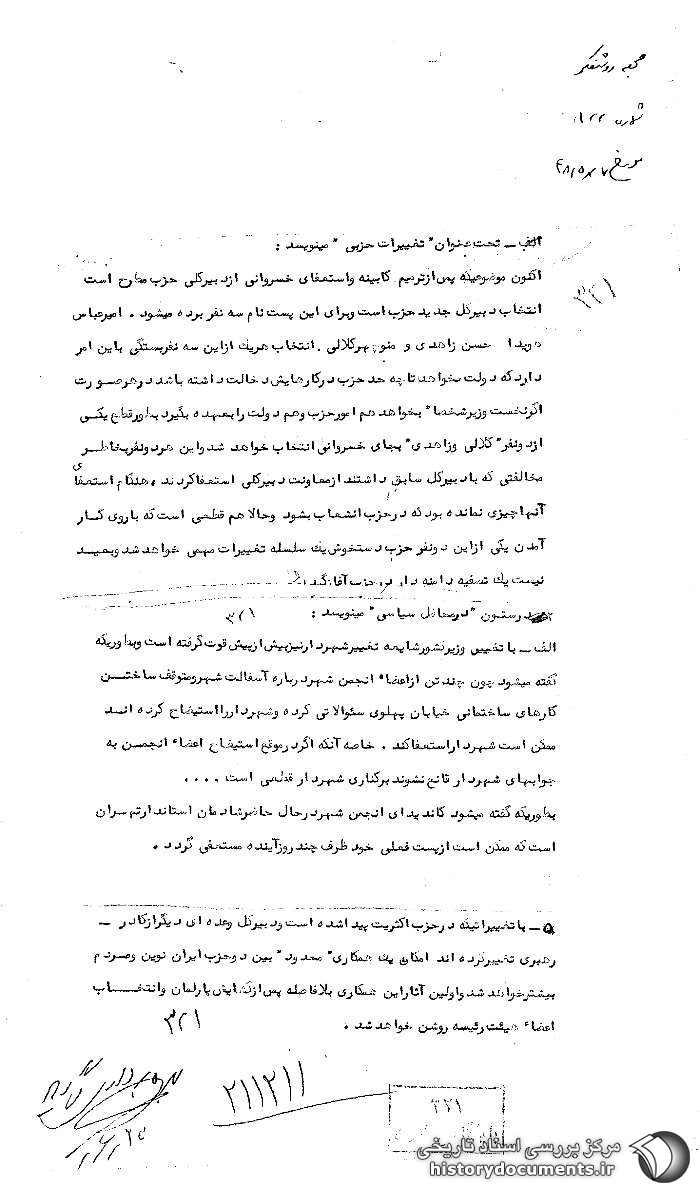 مجله روشنفکر
شماره
مورخ
الف ــ تحت عنوان " تغییرات حزبی " مینویسد :
۳۲۱
اکنون موضوعیکه پس از ترمیم کابینه واستعفای خسروانی ازدبیرکلی حزب مطرح است
انتخاب دبیرکل جدید حزب است وبرای این پست نام سه نفر برده میشود . امیرعباس
هویدا حسن زاهدی و منوچهرکلالی . انتخاب هریك ازاین سه نفربستگی باین امر
داردکه دولت بخواهد تاچه حد حزب درکارهایش دخالت داشته باشد درهرصورت
اگرنخست وزیرشخصا" بخواهد هم امورحزب وهم دولت رابعهده بگیرد بطورقطع یکی
ازدونفر" کلالی وزاهدی" بجای خسروانی انتخاب خواهد شد واین هردونفربخاطر
مخالفتی که بادبیرکل سابق داشتند ازمعاونت دبیرکلی استعفاکردند ، هنگام استعفای
آنهاچیزی نمانده بودکه درحزب انشعاب بشود وحالا هم قطعی است که باروی کار
آمدن یکی ازاین دونفر حزب دستخوش یك سلسله تغییرات مهمی خواهد شد وبعید
نیست یك تصفیه دامنه دار در حزب آغازگردد
درستون " درمحافل سیاسی" مینویسد : ۳۲۱
الف ــ با تغییر وزیرکشورشایعه تغییرشهردارنیزبیش ازپیش قوت گرفته است وبطوریکه
گفته میشود چون چند تن ازاعضاء انجمن شهر درباره آسفالت شهرومتوقف ساختن
کارهای ساختمانی خیابان پهلوی سئوالاتی کرده وشهردار رااستیضاح کرده اند
ممکن است شهرداراستعفاکند . خاصه آنکه اگردرموقع استیضاح اعضاء انجمن به
جوابهای شهردار قانع نشوند برکناری شهردار قطعی است ....
بطوریکه گفته میشود کاندیدای انجمن شهردرحال حاضرشادمان استاندارتهران
است که ممکن است ازپست فعلی خود ظرف چند روزآینده مستعفی گردد .
۵ ــ با تغییراتیکه درحزب اکثریت پیداشده است ودبیرکل وعده ای دیگرازکادر ــ
رهبری تغییرکرده اند امکان یك همکاری" محدود" بین دوحزب ایران نوین ومردم
بیشترخواهد شد واولین آثاراین همکاری بلافاصله پس ازگشایش پارلمان وانتخاب
اعضاء هیئت رئیسه روشن خواهد شد .
۳۲۱
۲۱۱۲۱۱
۳۲۱
مرکز بررسی اسناد تاریخی
historydocuments.ir